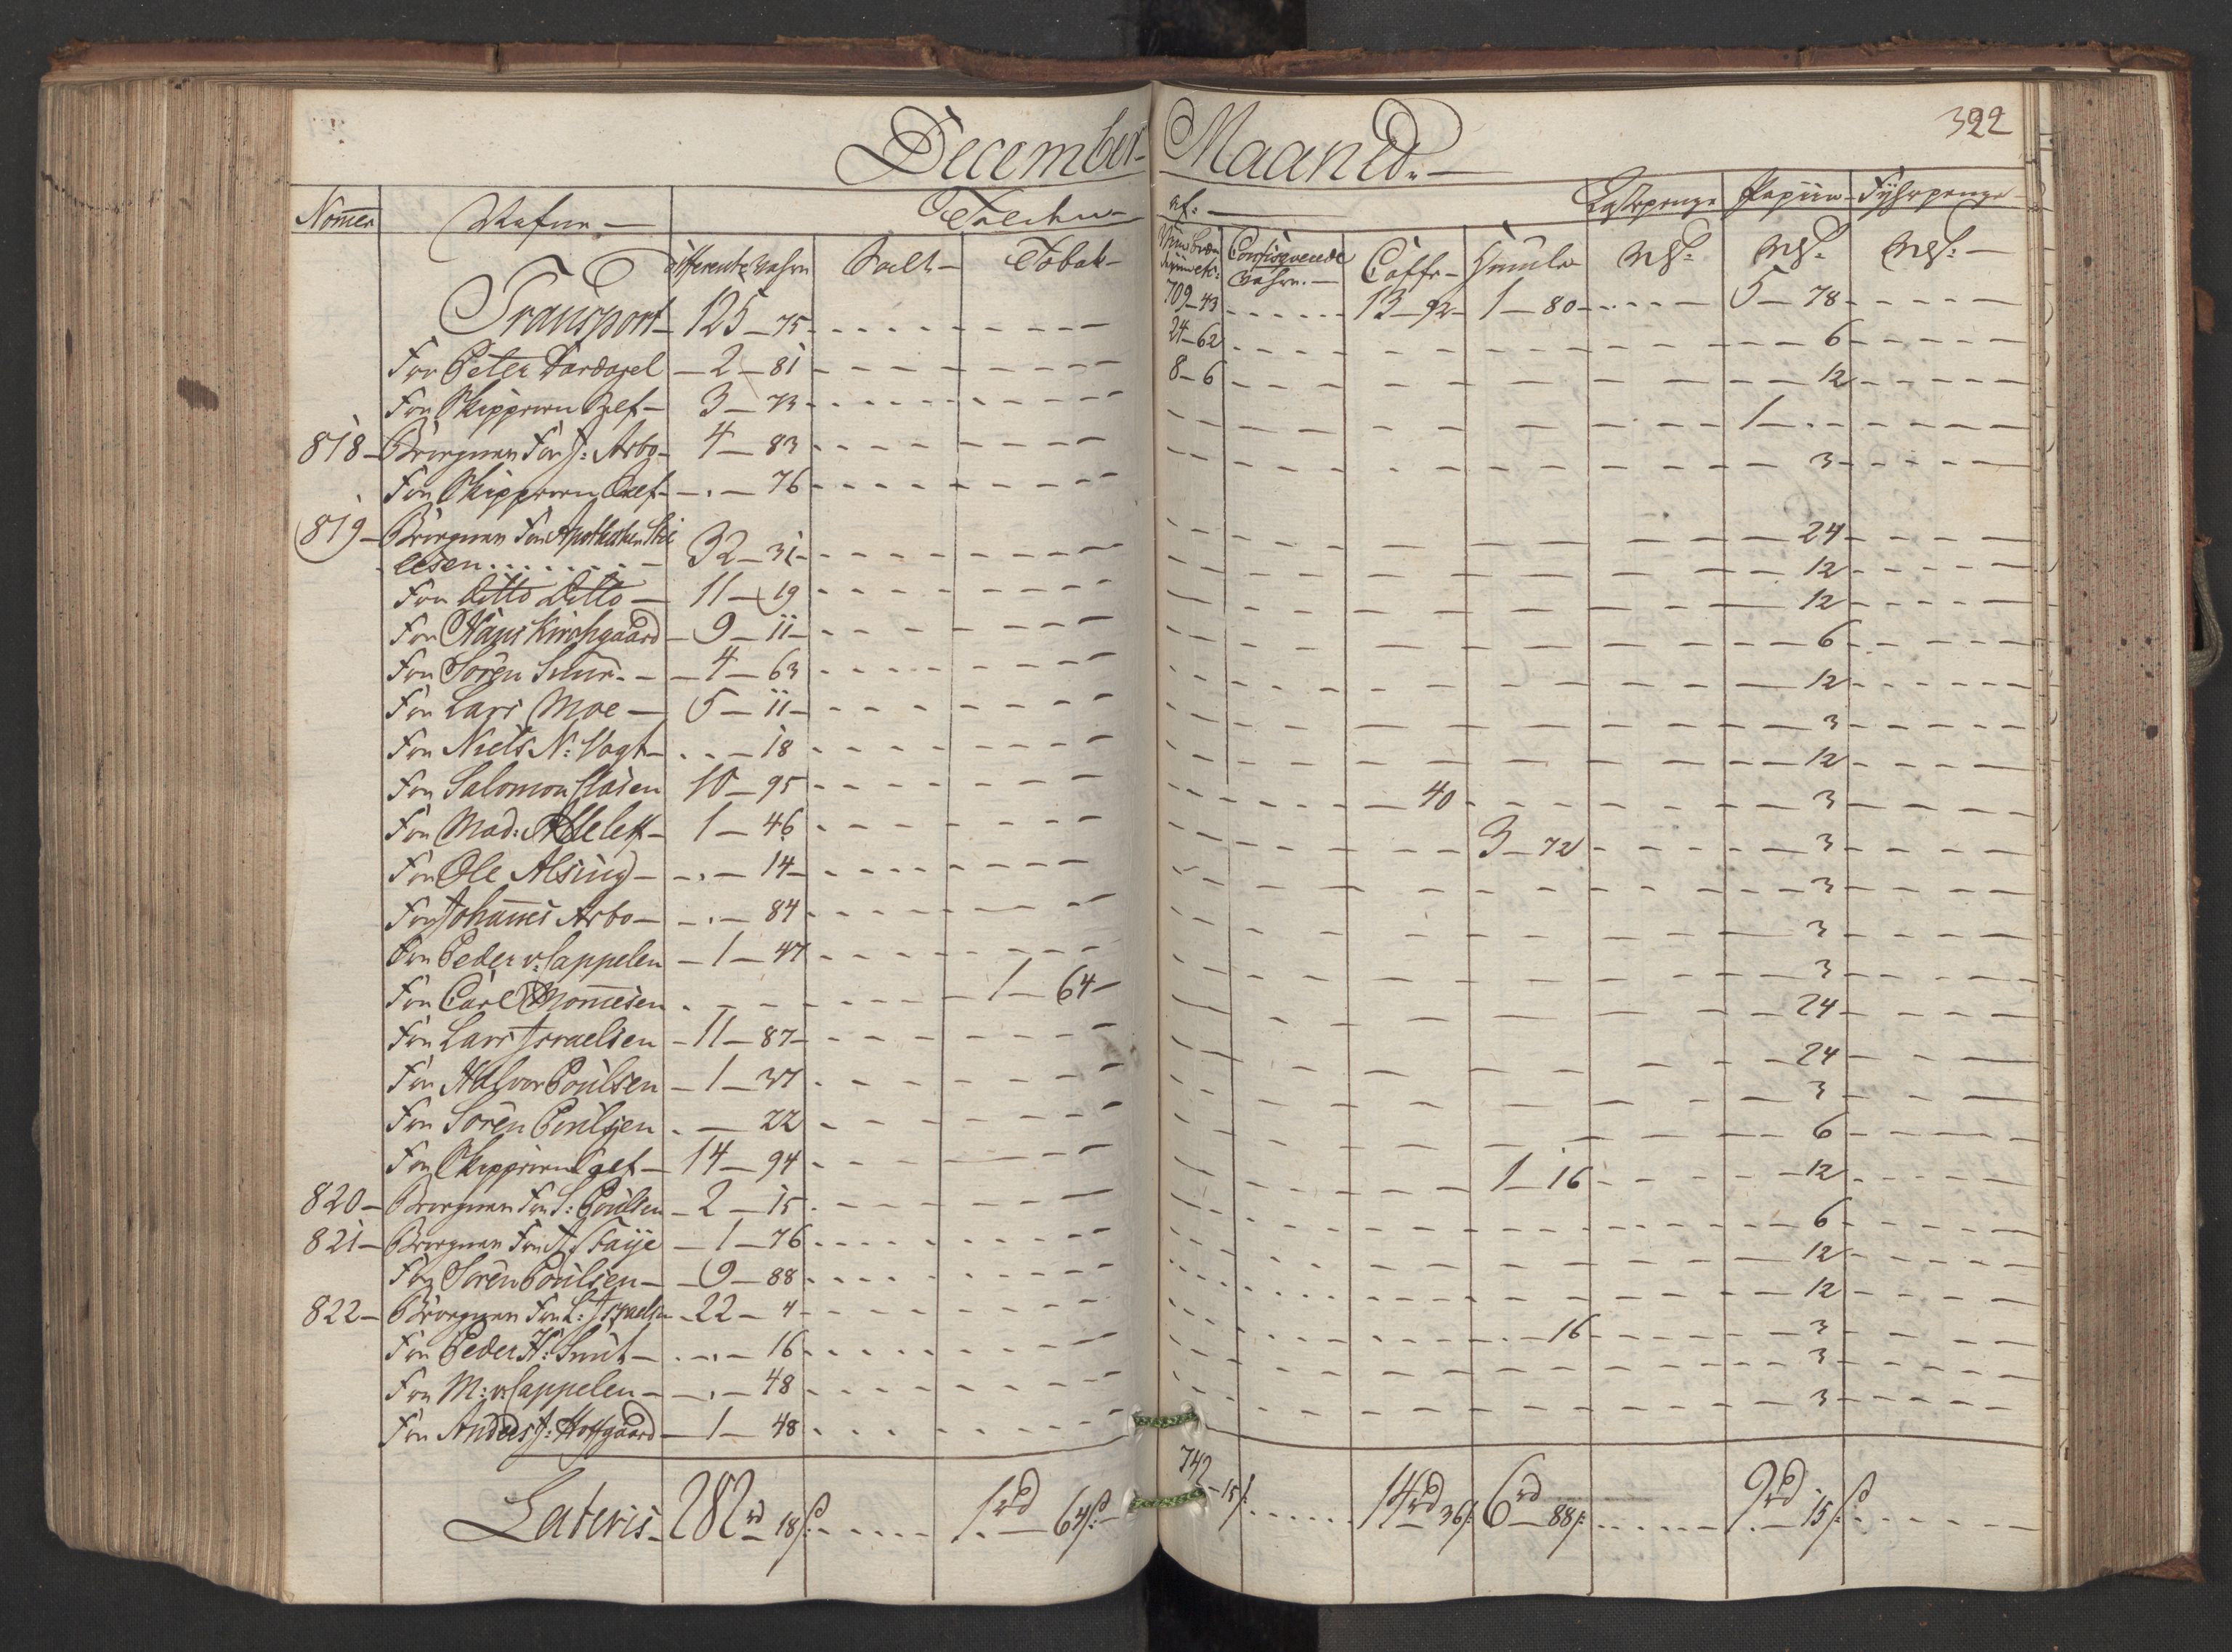 December Maaned.
322
Nomer Nafne Tolden af: Lastepenge Papiir Fyhrpenge
differente Vahre Salt Tobak Confisqverede Vahre. Caffe Humle Rdl. Rdl. Rdl.
Transport 125 - 75 709 - 43 13 - 92 1 - 80 5 - 78
For Peter Dardagel 2 - 81 24 - 62 6
For Skipperen Self 3 - 73 8 - 6 12
818 - Bórgman For J: Arbo 4 - 83 1 -
For Skipperen Self - 76 3
819 - Bórgman For Apothecher
eesen 32 - 31 24
For Ditto Ditto 11 - 19 12
For Hans Kirchgaard 9 - 11 12
For Sóren 4 - 63 6
For Lars Moe 5 - 11 12
For Niels N: Vogt - 18 3
For Salomon Clasen 10 - 95 12
For Mad: 1 - 46 40 3
For Ole Alsing - 14 3 - 72 3
For Johannes Arbo - 84 3
For Peder v: Cappelen 1 - 47 3
For Carl Mommesen 1 - 64 3
For Lars Israelsen 11 - 87 24
For Halvor Poulsen 1 - 37 24
For Sóren Poulsen - 22 3
For Skipperen Self 14 - 94 6
820 - Bórgman For S: Poulsen 2 - 15 1 - 16 12
821 - Bórgman For Faÿe 1 - 76 6
For Sóren Poulsen 9 - 88 12
822 - Bórgman For L: Israelsen 22 - 4 12
For Peder H: Smit - 16 - 16 3
For M: v: Cappelen - 48 3
For Anders J: Hoffgaard 1 - 48 3
Lateris 282 rd 18 ß 1 rd 64 ß 742 - 15 ß 14 rd 36 ß 6 rd 88 ß 9 rd 15 ß